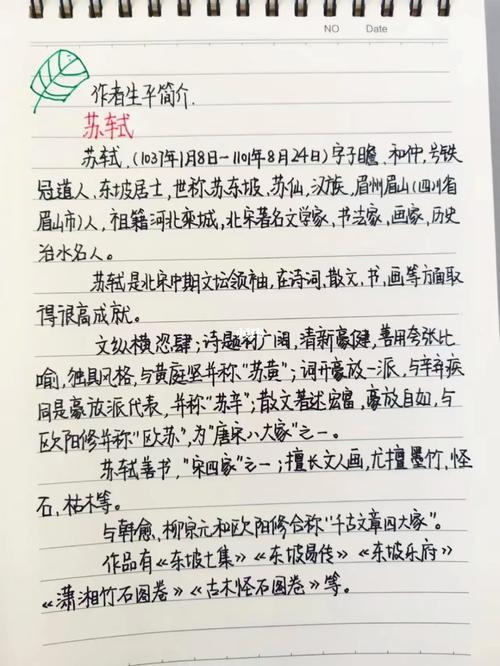 NO Date
作者生平简介.
苏轼
苏轼,(1037年1月8日—1101年8月24日)字子瞻、和仲,号铁
冠道人、东坡居士,世称苏东坡、苏仙,汉族,眉州眉山(四川省
眉山市)人,祖籍河北栾城,北宋著名文学家、书法家、画家、历史
治水名人。
苏轼是北宋中期文坛领袖,在诗词、散文、书、画等方面取
得很高成就。
文纵横恣肆;诗题材广阔,清新豪健,善用夸张比
喻,独具风格,与黄庭坚并称"苏黄";词开豪放一派,与辛弃疾
同是豪放派代表,并称"苏辛";散文著述宏富,豪放自如,与
欧阳修并称"欧苏",为"唐宋八大家"之一。
苏轼善书,"宋四家"之一;擅长文人画,尤擅墨竹、怪
石、枯木等。
与韩愈,柳宗元和欧阳修合称"千古文章四大家"。
作品有《东坡七集》《东坡易传》《东坡乐府》
《潇湘竹石图卷》《古木怪石图卷》等。